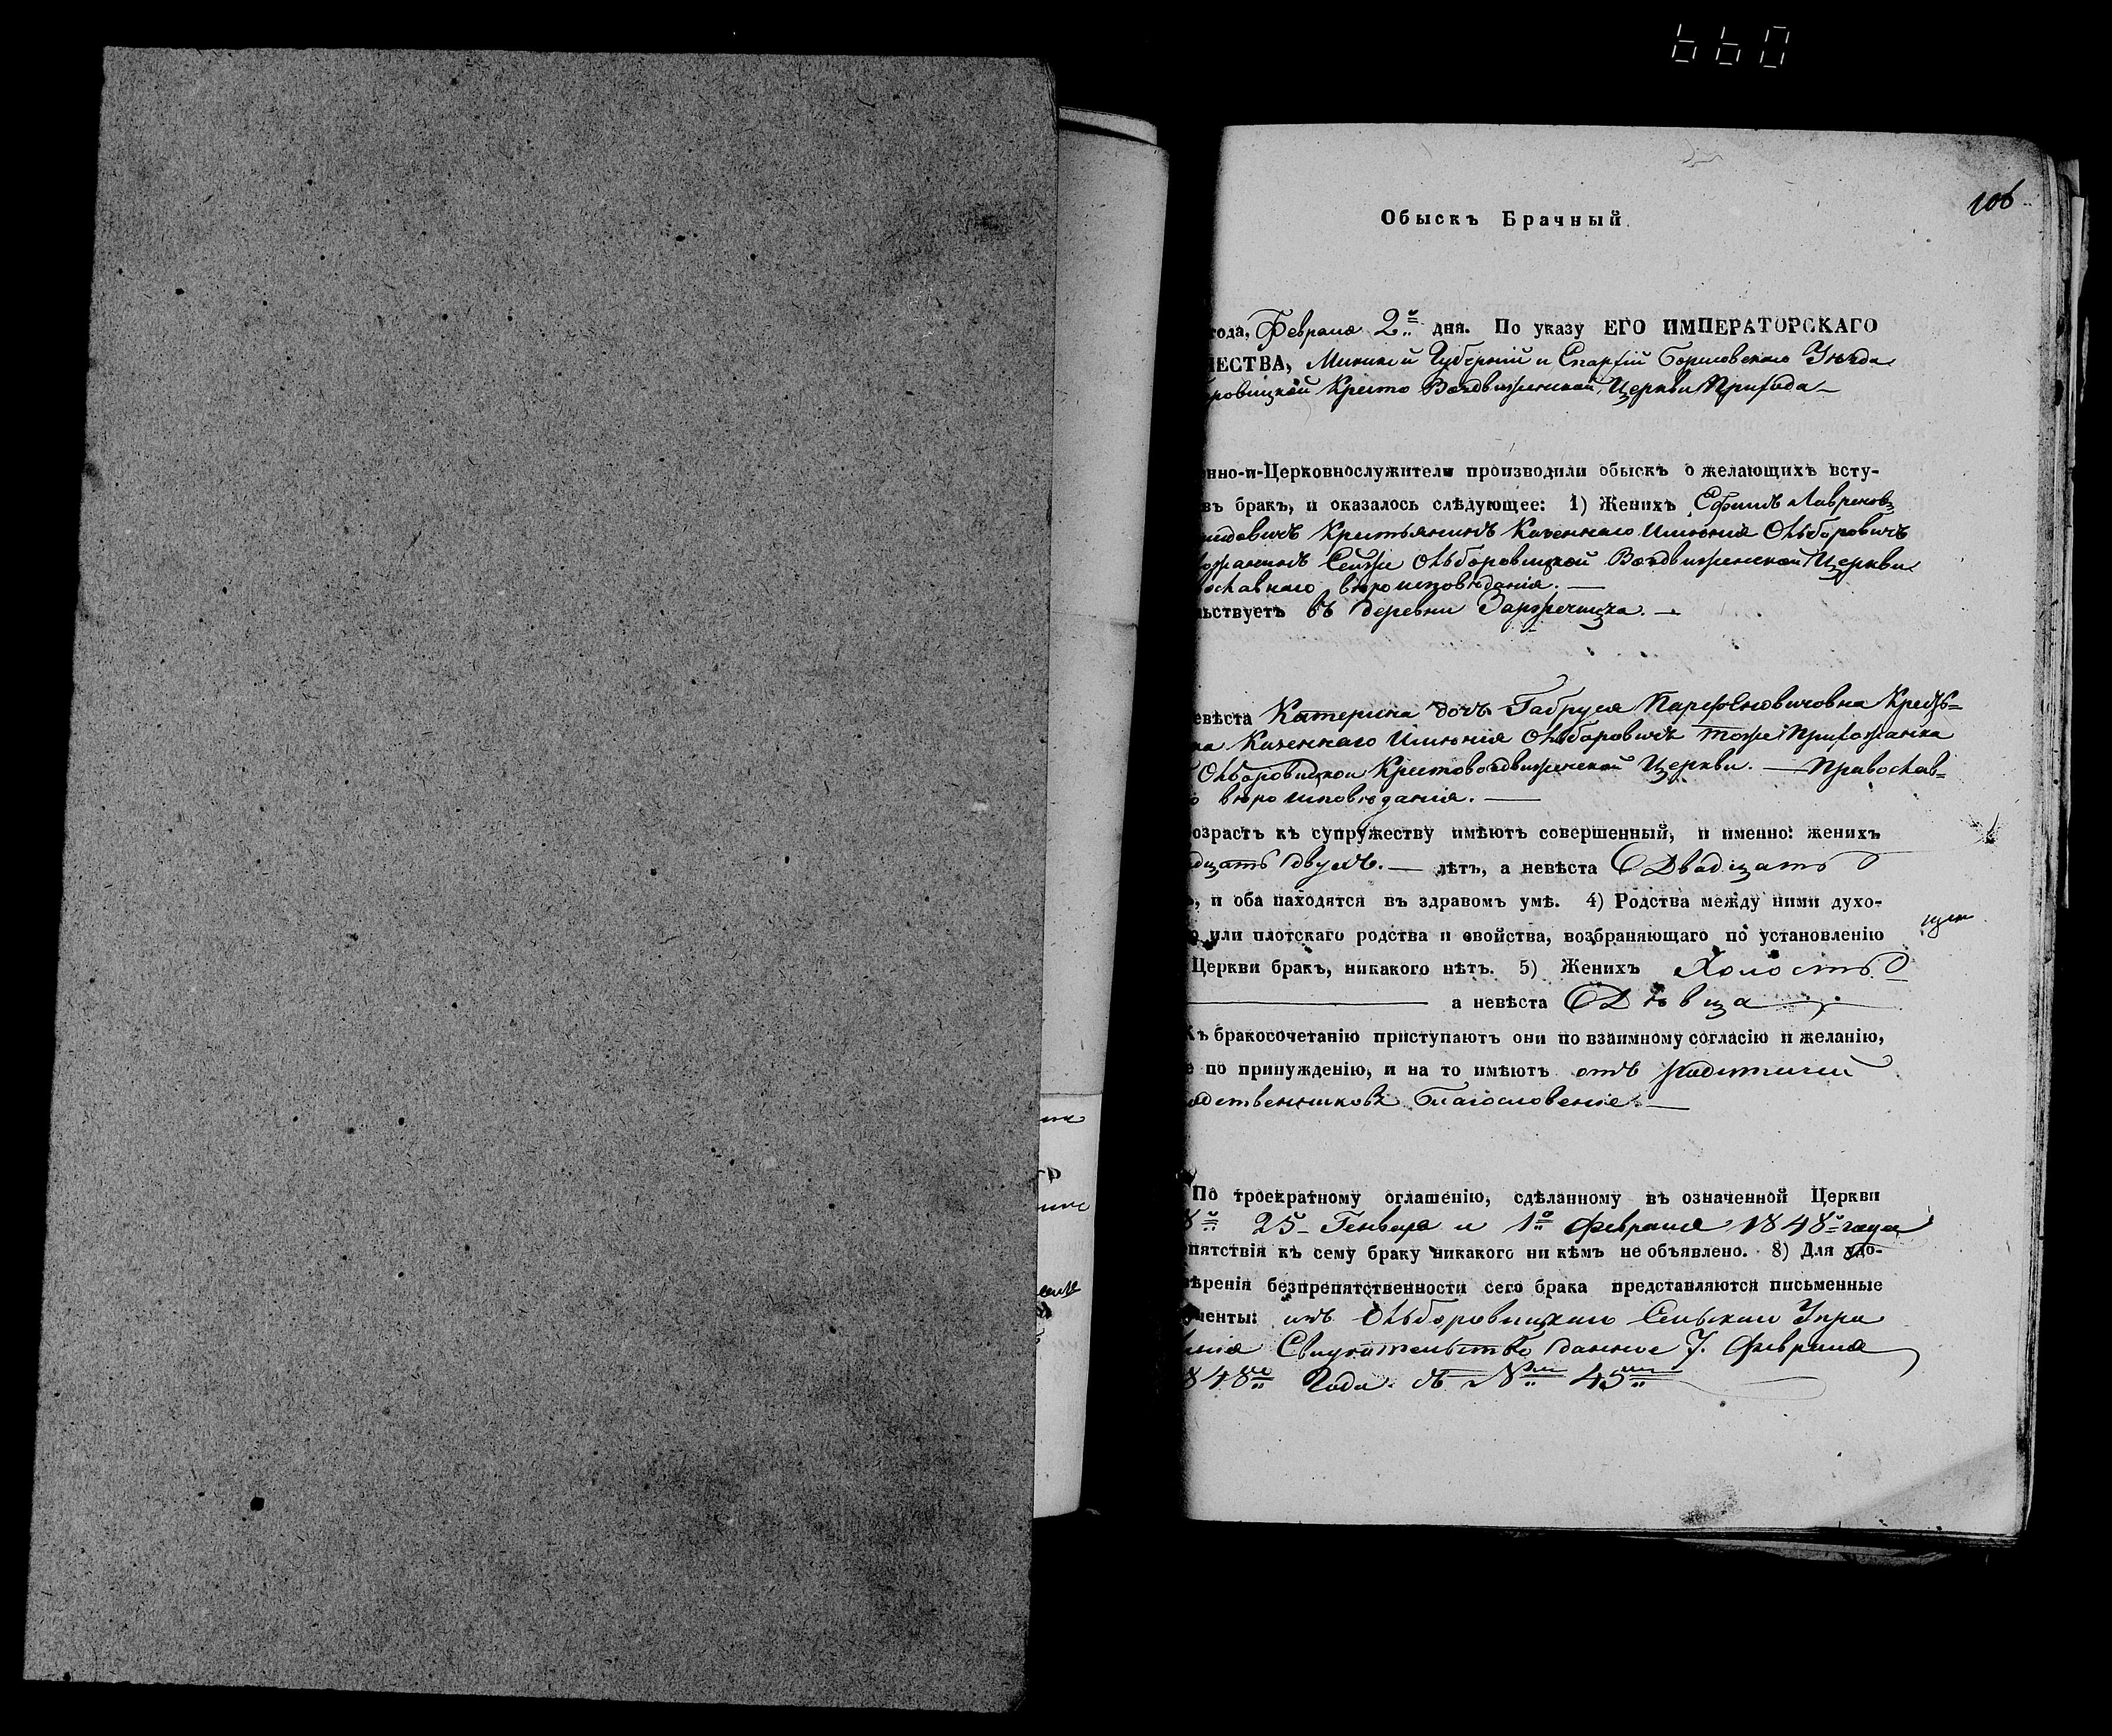 660
106
Обыскъ Брачный.
года, Февраля 2го дня. По указу ЕГО ИМПЕРАТОРСКАГО
ЧЕСТВА, Минской Губерніи и Епархіи Борисовскаго Уѣзда
ровицкой Кресто Воздвиженской Церкви Прихода
нно-и-Церковнослужители производили обыскъ о желающихъ всту-
въ брак, и оказалось слѣдующее: 1) Женихъ Ефимъ Лавренов
идовичъ Крестьянинъ Казеннаго Имѣнія Ольборовичъ
ожанинъ Сейже Ольборовицкой Воздвиженской Церкви
ославнаго вѣроисповѣданія.
льствуетъ въ деревни Заречица.
евѣста Катерина дочь Габруся Парфеновичовна Кресть=
ка Казеннаго Имѣнія Ольборовичъ тоже Прихожанка
Ольборовицкой Крестовоздвиженской Церкви. Православ=
о вѣроисповѣданія.
озрастъ къ супружеству имѣютъ совершенный, и именно: женихъ
дцать двухъ. лѣтъ, а невѣста Двадцать
ъ, и оба находятся въ здравомъ умѣ. 4) Родства между ними духо-
о или плотскаго родства и свойства, возбраняющаго по установленію
Церкви бракъ, никакого нѣтъ. 5) Женихъ Холостъ
а невѣста Дѣвица
Къ бракосочетанію приступаютъ они по взаимному согласію и желанію,
е по принужденію, и на то имѣютъ отъ Родителей
одственниковъ Благословеніе.
По троекратному оглашенію, сдѣланному въ означенной Церкви
25 Генваря и 1го Февраля 1848 года
пятствія къ сему браку никакого ни кѣмъ не объявлено. 8) Для удо-
ѣренія безпрепятственности сего брака представляются письменные
менты: изъ Ольборовицкаго Сельскаго Упра
енія Свидѣтельство данное 7. Февраля
848го Года. за №м 45м